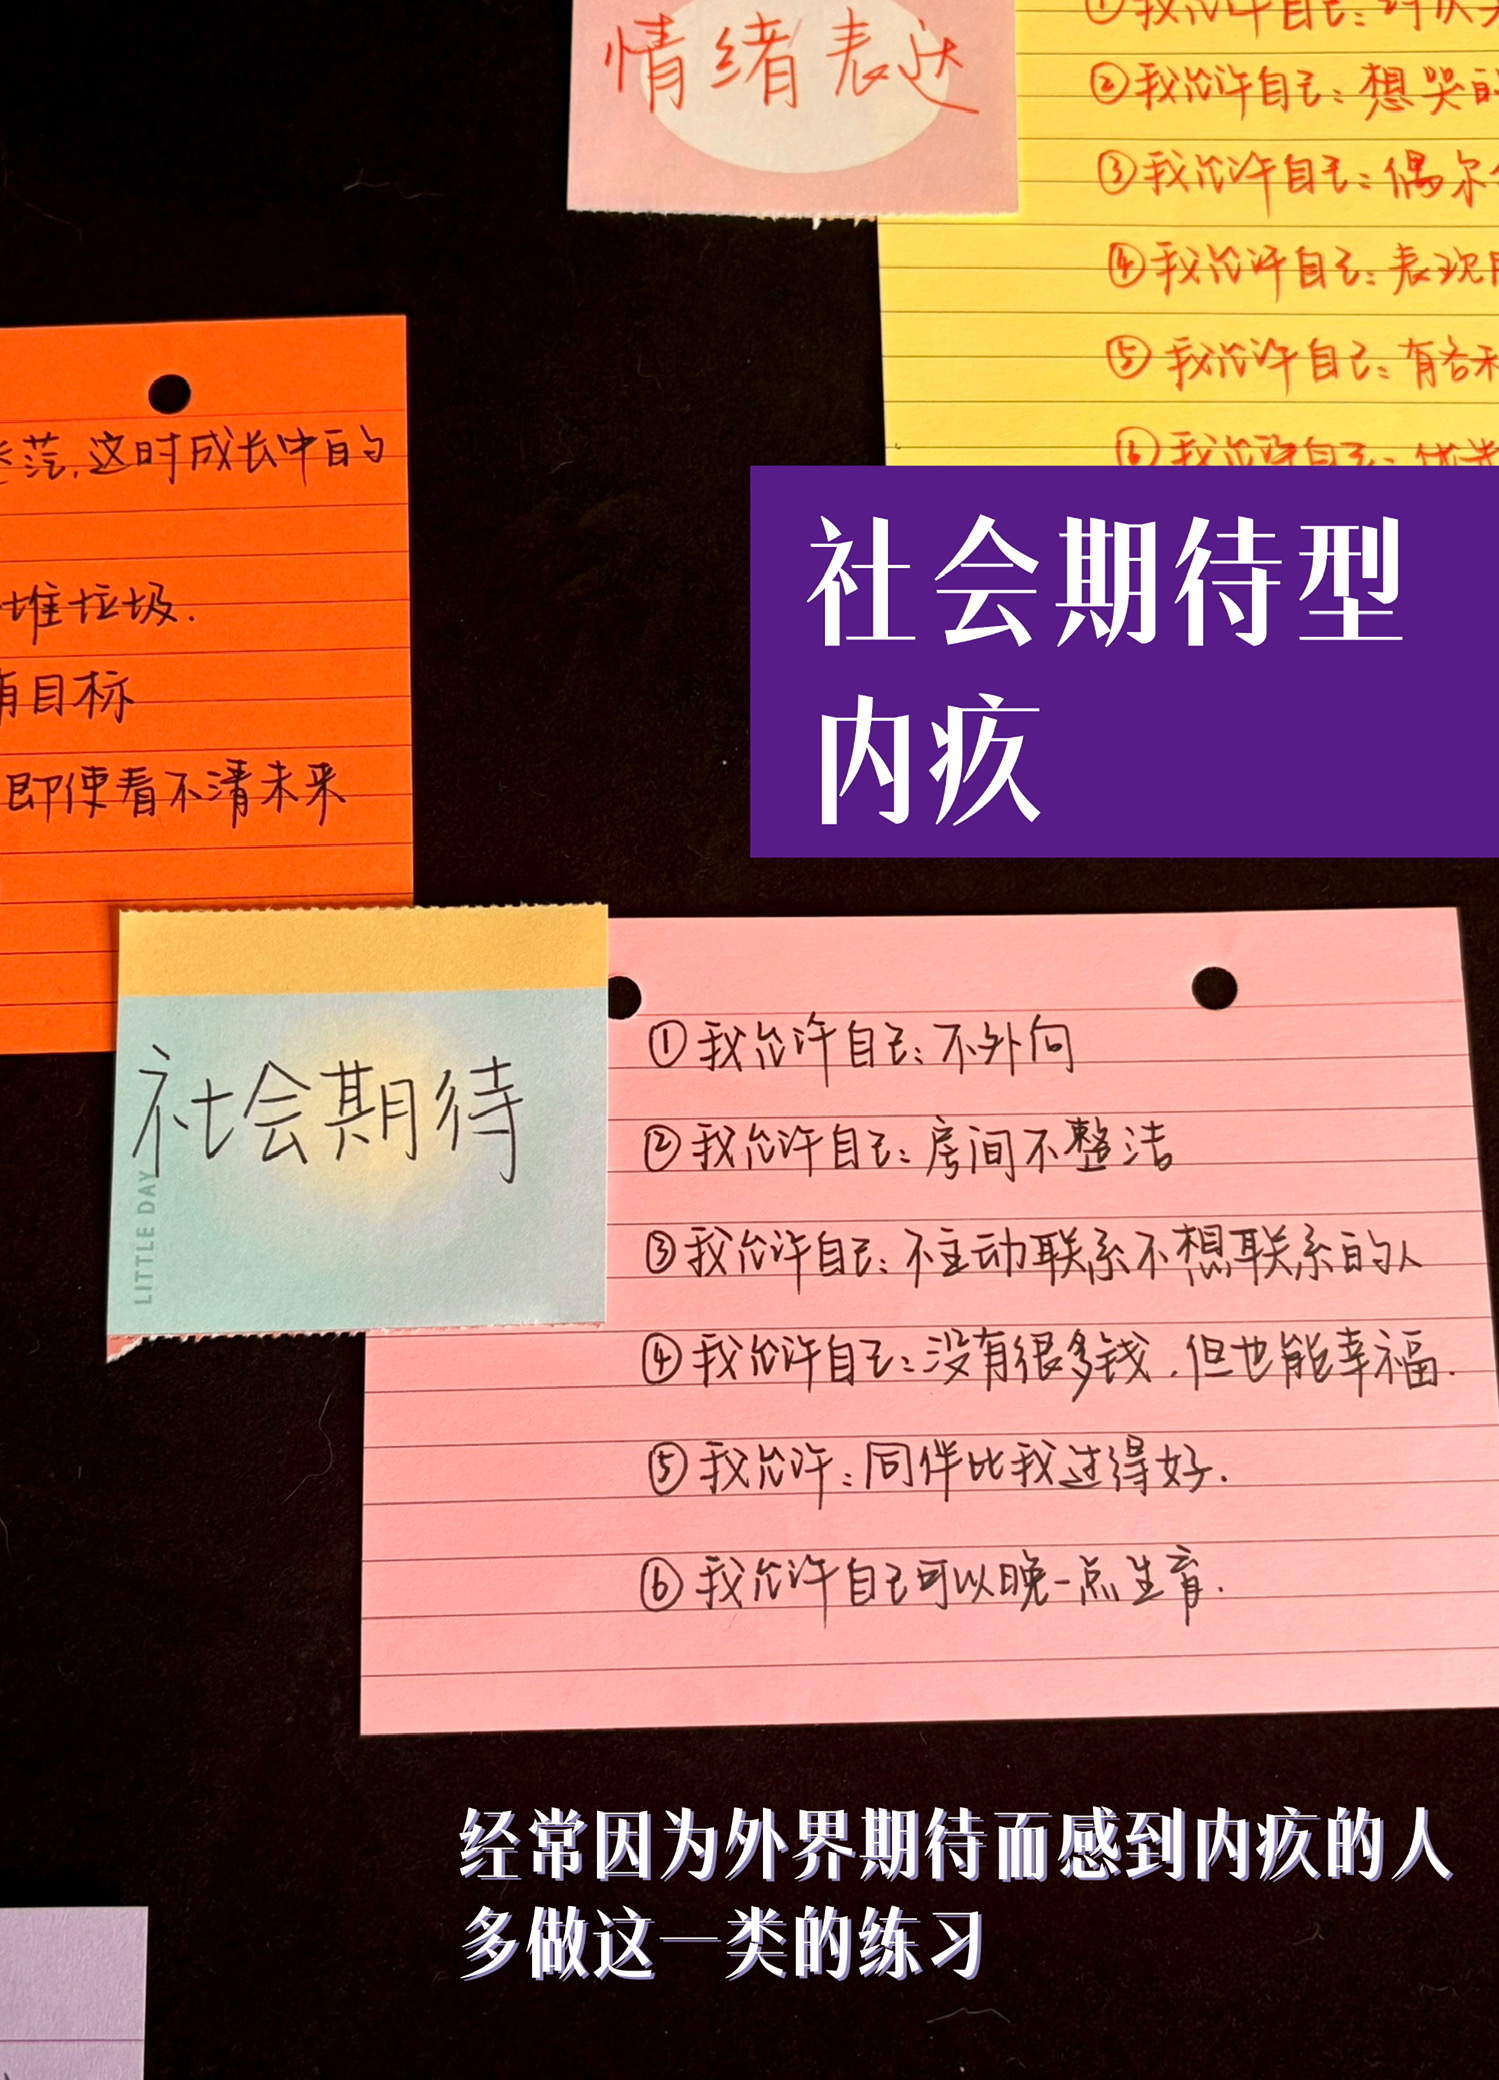 情绪表达
②我允许自己：想哭的
③我允许自己：偶尔
④我允许自己：表现
⑤我允许自己：有各
⑥我允许自己：
茫，这时成长中的
堆垃圾.
有目标
即使看不清未来
社会期待型
内疚
社会期待
LITTLE DAY
①我允许自己：不外向
②我允许自己：房间不整洁
③我允许自己：不主动联系不想联系的人
④我允许自己：没有很多钱，但也能幸福.
⑤我允许：同伴比我过得好.
⑥我允许自己可以晚一点生育.
经常因为外界期待而感到内疚的人
多做这一类的练习